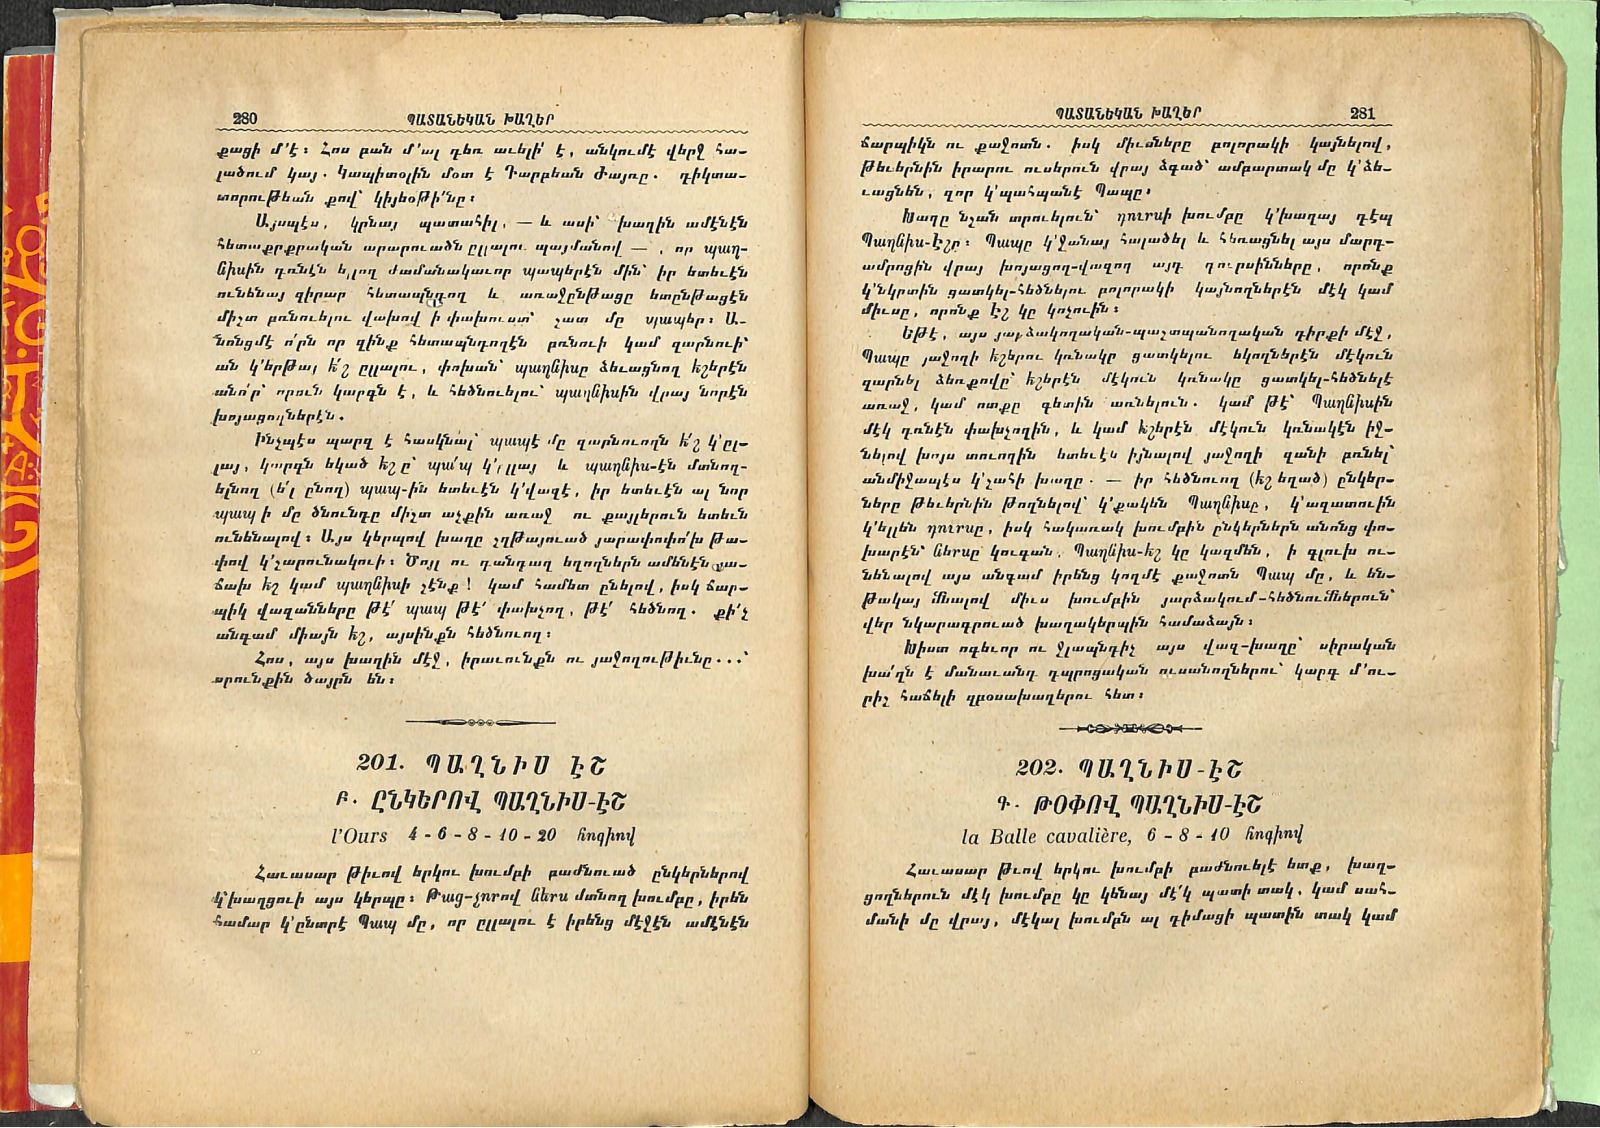 280 ՊԱՏԱՆԵԿԱՆ ԽԱՂԵՐ
քացի մ՚է։ Հոս բան մ՚ալ դեռ աւելի՛ է, անկումէ վերջ հա-
լածում կայ. Կապիտօլին մօտ է Դարբեան Ժայռը. դիկտա-
տորութեան քով՝ կիյեօթի՛նը։
Այսպէս, կրնայ պատահիլ, — և ասի՝ խաղին ամէնէն
հետաքրքրական արարուածն ըլլալու պայմանով — , որ պաղ-
նիսին դռնէն ելլող ժամանակաւոր պապերէն մին՝ իր ետեւէն
ունենայ զիրար հետապնդող և առաջընթացը ետընթացէն
միշտ բռնուելու վախով ի փախուստ՝ շատ մը պապեր։ Ա-
նոնցմէ ո՛րն որ զինք հետապնդողէն բռնուի կամ զարնուի՝
ան կ՚երթայ է՛շ ըլլալու, փոխան՝ պաղնիսը ձեւացնող էշերէն
անո՛ր՝ որուն կարգն է, և հեծնուելու՝ պաղնիսին վրայ նորէն
խոյացողներէն.
Ինչպէս պարզ է հասկնալ՝ պապէ մը զարնուողն է՛շ կ՚ըլ-
լայ, կարգն եկած էշը՝ պա՛պ կ՚ըլլայ և պաղնիս-էն մտնող-
ելնող (ե՛լ ընող) պապ-ին ետեւէն կ՚վազէ, իր ետեւէն ալ նոր
պապի մը ծնունդը միշտ աչքին առաջ ու քայլերուն ետեւն
ունենալով։ Այս կերպով խաղը շղթայուած յարափոփո՛խ թա-
փով կ՚շարունակուի։ Ծոյլ ու դանդաղ եղողներն ամենէն յա-
ճախ էշ կամ պաղնիսի չէնք! կամ համետ ընելով, իսկ ճար-
պիկ վազանները թէ՛ պապ թէ՛ փախչող, թէ՛ հեծնող. քի՛չ
անգամ միայն էշ, այսինքն հեծնուող։
Հոս, այս խաղին մէջ, իրաւունքն ու յաջողութիւնը...՝
սրունքին ծայրն են։
201. ՊԱՂՆԻՍ ԷՇ
Բ. ԸՆԿԵՐՈՎ ՊԱՂՆԻՍ-ԷՇ
l'Ours 4 - 6 - 8 - 10 - 20 հոգիով
Հաւասար թիւով երկու խումբի բաժնուած ընկերներով
կ՚խաղցուի այս կերպը։ Թաց-չորով ներս մտնող խումբը, իրեն
համար կ՚ընտրէ Պապ մը, որ ըլլալու է իրենց մէջէն ամէնէն
ՊԱՏԱՆԵԿԱՆ ԽԱՂԵՐ 281
ճարպիկն ու քաջոտն. իսկ միւսները բոլորակի կայնելով,
թեւերնին իրարու ուսերուն վրայ ձգած՝ ամբարտակ մը կ՚ձե-
ւացնեն, զոր կ՚պահպանէ Պապը։
Խաղը նշան տրուելուն՝ դուրսի խումբը կ՚խաղայ դէպ
Պաղնիս-էշը։ Պապը կ՚ջանայ հալածել և հեռացնել այս մարդ-
ամրոցին վրայ խոյացող-վազող այդ դուրսիները, որոնք
կ՚նկրտին ցատկել-հեծնելու բոլորակի կայնողներէն մէկ կամ
միւսը, որոնք էշ կը կոչուին։
Եթէ, այս յարձակողական-պաշտպանողական դիրքի մէջ,
Պապը յաջողի էշերու կռնակը ցատկելու եկողներէն մէկուն
զարնել ձեռքովը՝ էշերէն մէկուն կռնակը ցատկել-հեծնելէ
առաջ, կամ ոտքը գետին առնելուն. կամ թէ՝ Պաղնիսին
մէկ դռնէն փախչողին, և կամ էշերէն մէկուն կռնակէն իջ-
նելով խոյս տուողին ետեւէն իյնալով յաջողի զանի բռնել՝
անմիջապէս կ՚շահի խաղը. — իր հեծնուող (էշ եղած) ընկեր-
ները թեւերնին թողնելով՝ կ՚քակեն Պաղնիսը, կ՚ազատուին
կ՚ելլեն դուրսը, իսկ հակառակ խումբին ընկերներն անոնց փո-
խարէն՝ ներսը կուգան, Պաղնիս-էշ կը կազմեն, ի գլուխ ու-
նենալով այս անգամ իրենց կողմէ քաջոտն Պապ մը, և են-
թակայ մնալով միւս խումբին յարձակում-հեծնումներուն՝
վեր նկարագրուած խաղակերպին համաձայն։
Խիստ ոգեւոր ու ջլապնդիչ այս վազ-խաղը՝ սիրական
խա՛ղն է մանաւանդ դպրոցական ուսանողներու՝ կարգ մ՚ու-
րիշ հաճելի զբօսախաղերու հետ։
202. ՊԱՂՆԻՍ-ԷՇ
Գ. ԹՕՓՈՎ ՊԱՂՆԻՍ-ԷՇ
la Balle cavalière, 6 - 8 - 10 հոգիով
Հաւասար թւով երկու խումբի բաժնուելէ ետք, խաղ-
ցողներուն մէկ խումբը կը կենայ մէ՛կ պատի տակ, կամ սահ-
մանի մը վրայ, մէկալ խումբն ալ դիմացի պատին տակ կամ